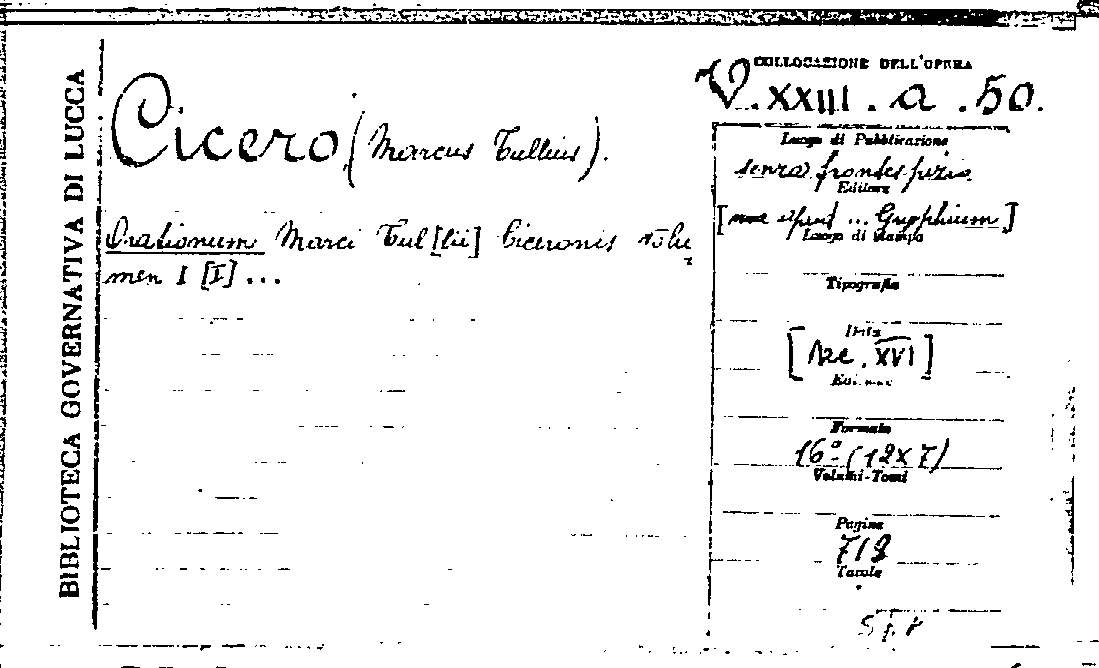 BIBLIOTECA GOVERNATIVA DI LUCCA
Cicero (Marcus Tullius).
Orationum Marci Tul[lii] Ciceronis volu
men I [I] ...
COLLOCAZIONE DELL'OPERA
V. XXIII. a. 50.
Luogo di Pubblicazione
senza frontespizio
Editore
apud ... Gryphium]
Luogo di Stampa
Tipografia
Data
[sec. XVI]
Edizione
Formato
16º (12x7)
Volumi-Tomi
Pagine
719
Tavole